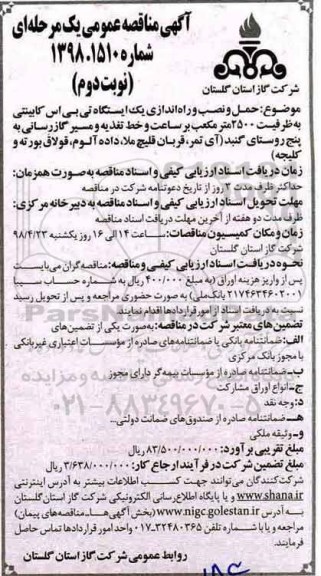 آگهی مناقصه عمومی یک مرحله‌ای
شماره ۱۵۱۰-۱۳۹۸
(نوبت دوم)
شرکت گاز استان گلستان
موضوع: حمل و نصب و راه‌اندازی یک ایستگاه تی بی اس کابینتی
به ظرفیت ۲۵۰۰ متر مکعب بر ساعت و خط تغذیه و مسیر گازرسانی به
پنج روستای گنبد (آی تمر، قربان قلیچ ملا، داده آلوم، قولاق بورته و
کلیجه)
زمان دریافت اسناد ارزیابی کیفی و اسناد مناقصه به صورت همزمان:
حداکثر ظرف مدت ۳ روز از تاریخ دعوتنامه شرکت در مناقصه
مهلت تحویل اسناد ارزیابی کیفی و اسناد مناقصه به دبیرخانه مرکزی:
ظرف مدت دو هفته از آخرین مهلت دریافت اسناد مناقصه
زمان و مکان کمیسیون مناقصات: ساعت ۱۴ الی ۱۶ روز یکشنبه ۹۸/۴/۲۳
شرکت گاز استان گلستان
نحوه دریافت اسناد ارزیابی کیفی و مناقصه: مناقصه‌گران می‌بایست
پس از واریز هزینه اوراق (به مبلغ ۴۰۰/۰۰۰ ریال به شماره حساب سیبا
۲۱۷۴۶۳۴۶۰۲۰۰۱ بانک ملی) به صورت حضوری مراجعه و پس از تحویل رسید
نسبت به دریافت اسناد از امور قراردادها اقدام نمایند.
تضمین های معتبر شرکت در مناقصه: به صورت یکی از تضمین‌های
الف: ضمانتنامه بانکی یا ضمانتنامه‌های صادره از مؤسسات اعتباری غیربانکی
با مجوز بانک مرکزی
ب- ضمانتنامه صادره از مؤسسات بیمه‌گر دارای مجوز
ج- انواع اوراق مشارکت
د: وجه نقد
هـ- ضمانتنامه صادره از صندوق‌های ضمانت دولتی...
و- وثیقه ملکی
مبلغ تقریبی برآورد: ۸۳/۵۰۰/۰۰۰/۰۰۰ ریال
مبلغ تضمین شرکت در فرآیند ارجاع کار: ۳/۶۳۸/۰۰۰/۰۰۰ ریال
شرکت‌کنندگان می‌توانند جهت کسب اطلاعات بیشتر به آدرس اینترنتی
www.shana.ir و یا پایگاه اطلاع‌رسانی الکترونیکی شرکت گاز استان گلستان
به آدرس www.nigc.golestan.ir (بخش آگهی‌ها- مناقصه‌های پیمان)
مراجعه و یا با شماره تلفن ۳۲۴۸۰۳۶۵-۰۱۷ واحد امور قراردادها تماس حاصل
فرمایند.
روابط عمومی شرکت گاز استان گلستان